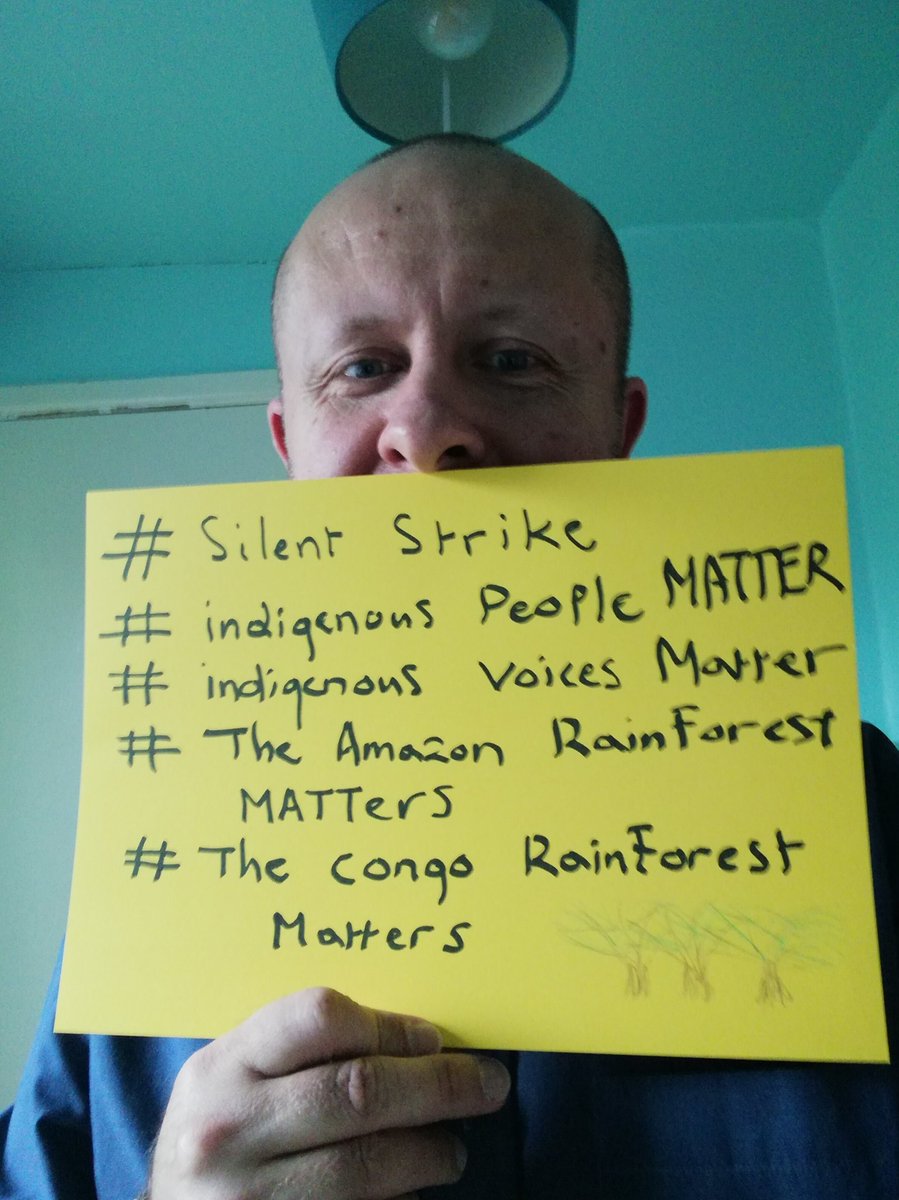 # Silent Strike
# indigenous People MATTER
# indigenous Voices Matter
# The Amazon RainForest
MATTerS
# The congo RainForest
Matters